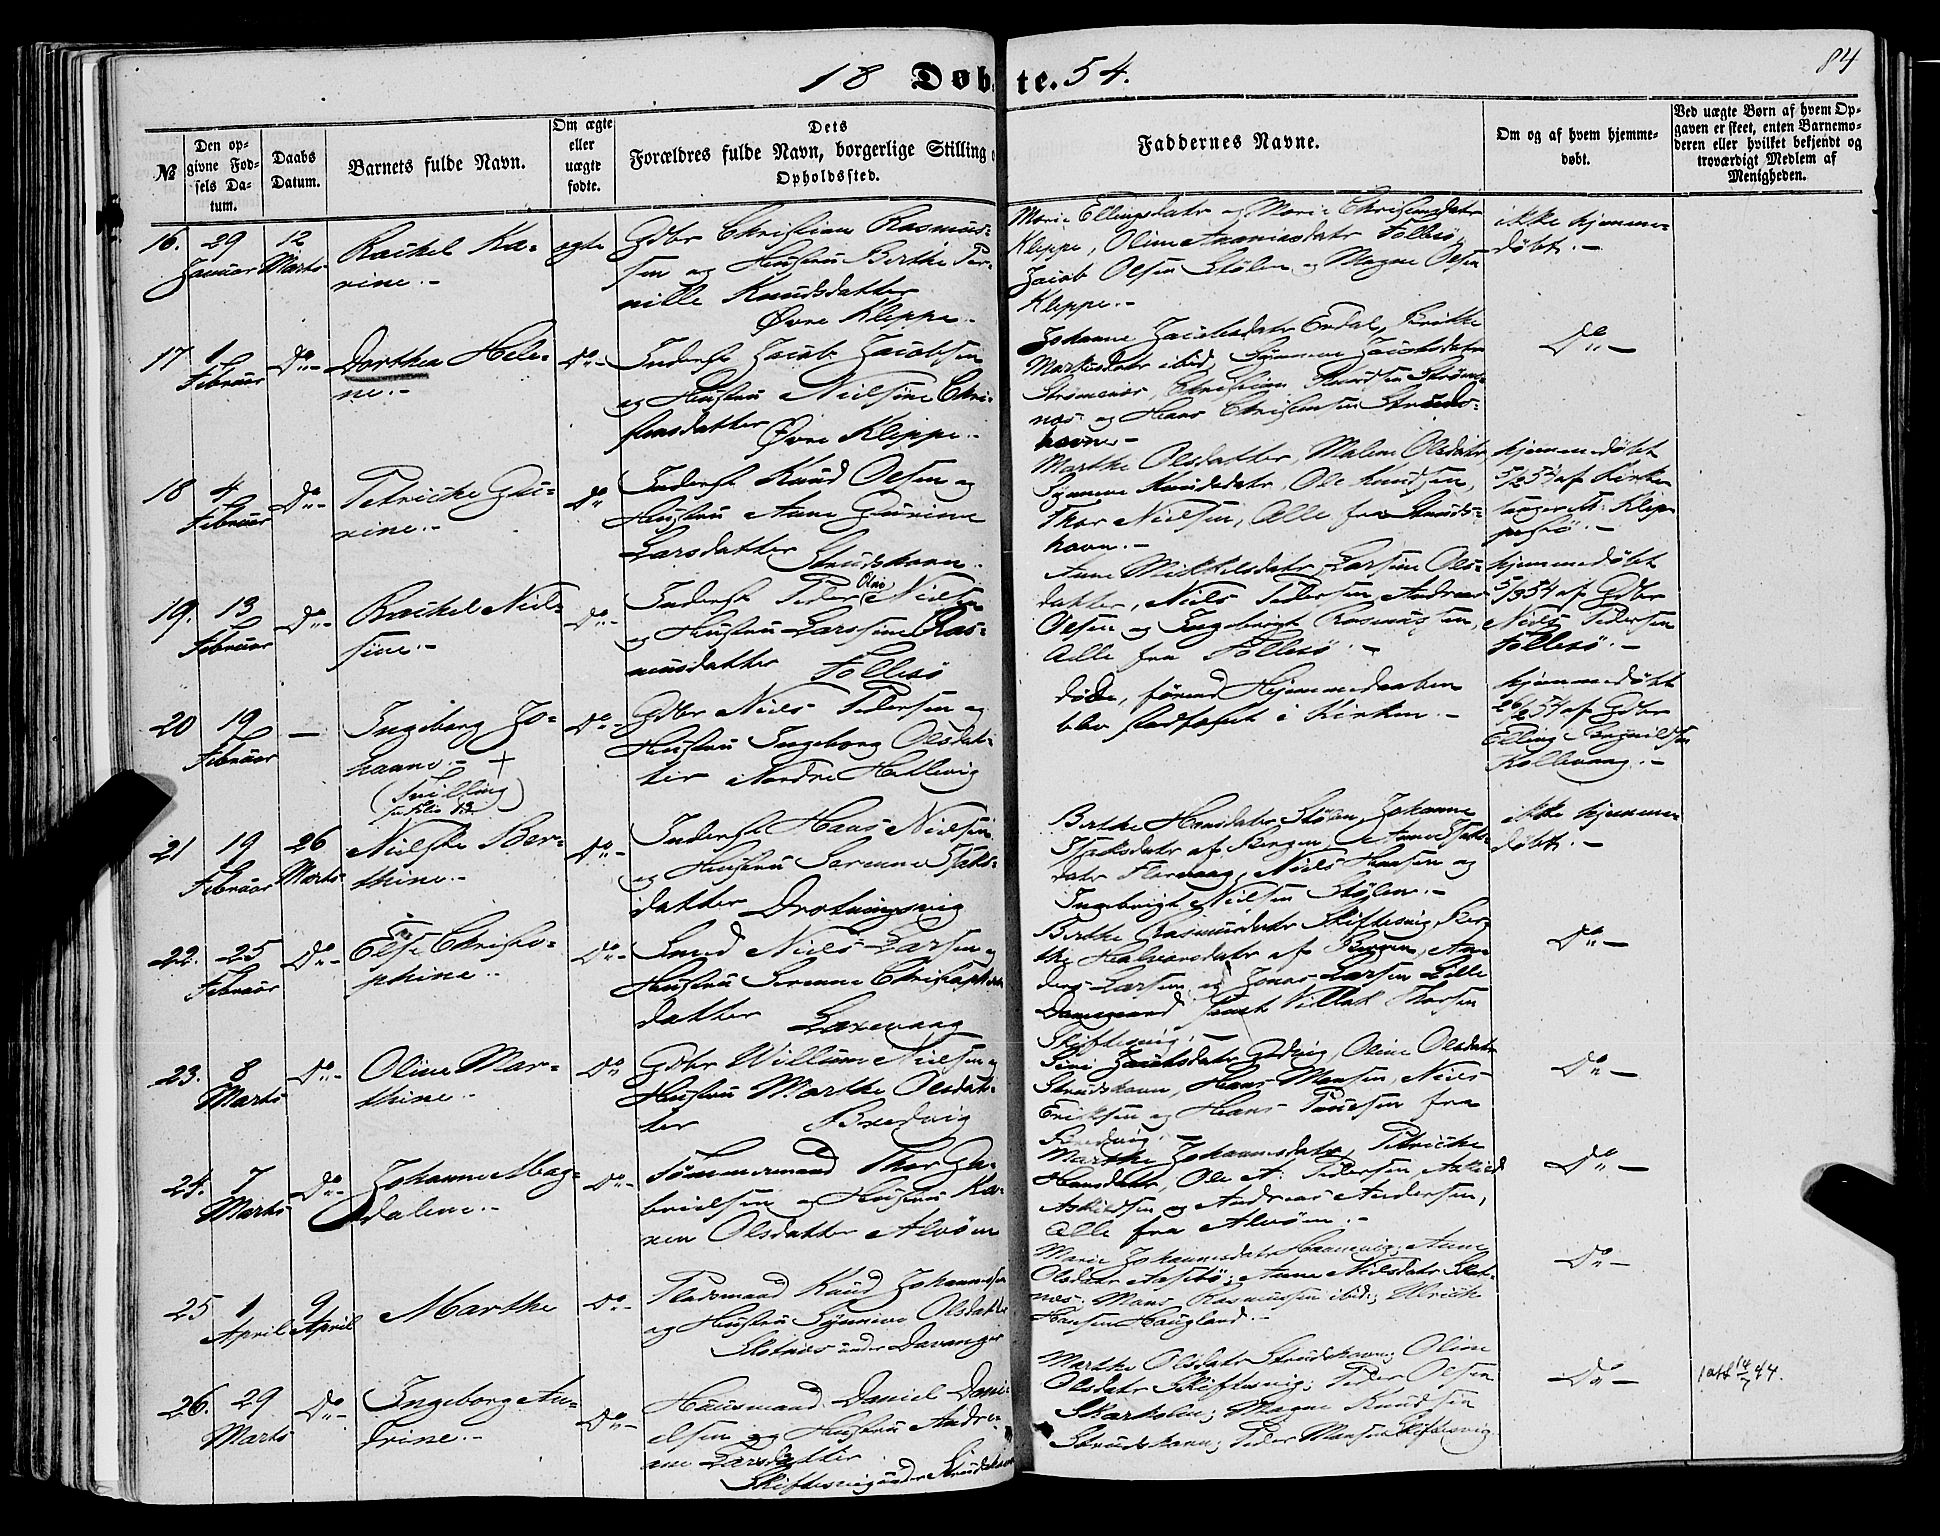 18 Døbte. 54.
84
№
Den opgivne Fødsels Datum.
Daabs Datum.
Barnets fulde Navn.
Om ægte eller uægte fødte.
Dets Forældres fulde Navn, borgerlige Stilling o Opholdssted.
Faddernes Navne.
Om og af hvem hjemmedøbt.
Ved uægte Børn af hvem Opgaven er skeet, enten Barnemoderen eller hvilket bekjendt og troværdigt Medlem af Menigheden.
16. 29 Januar 12 Marts
Rachel Ka-
rine.-
ægte
Gdbr Christian Rasmus-
sen og Hustru Birthe Per-
nille Knudsdatter
Øvre Kleppe.-
Marie Ellingsdatr og Marie Christensdatr
Kleppe, Oline Ananiasdatr Follesø,
Jacob Olsen Stølen og Magne Olsen
Kleppe.-
ikke hjemme-
døbt.-
17 1 Februar Do-
Dorthea Hele-
ne.-
Do-
Inderst Jacob Jacobsen
og Hustru Nielsine Chri-
stensdatter Øvre Kleppe.-
Johanne Jacobsdatr Erdal, Birthe
Markusdatr ibid, Synneve Jacobsdatr
Strømsnæs, Christian Knudsen Strøms-
næs og Hans Christensen Struds-
havn.-
Do-
18 4 Februar Do-
Petricke Gu-
rine.-
Do
Inderst Knud Olsen og
Hustru Anne Gurine
Larsdatter Strudshavn.
Marthe Olsdatter, Malene Olsdatr,
Synneve Knudsdatr, Ole Knudsen,
Thor Nielsen, Alle fra Struds-
havn.-
hjemmedøbt
5/2 54 af Kirke-
sanger M: Klep-
pestø.-
19. 13 Februar Do-
Rachel Niel-
sine.-
Do-
Inderst Peder Olai Nielsen
og Hustru Larssine Ras-
musdatter Follesø
Anne Mikkelsdatr, Larsine Ols-
datter, Niels Pedersen, Andreas
Olsen og Ingebrigt Rasmussen,
Alle fra Follesø.-
hjemmedøbt
5/3 54 af Gdbr
Niels Pedersen
Follesø.-
20 19 Februar —
Ingeborg Jo-
hanne.- +
(Tvilling
Do-
Gdbr Niels Pedersen og
Hustru Ingeborg Olsdat-
ter Nordre Hetlevig
døde, førend Hjemmedaaben
blev stadfæstet i Kirken.-
hjemmedøbt
26/2 54 af Gdbr
Elling
Kollevaag.-
21 19 Februar 26 Marts
Nielske Ber-
thine.-
Do-
Inderst Hans Nielsen
og Hustru Serenne Isaks-
datter Drotningsvig
Birthe Hansdatr Stølen, Johanne
Isaksdatr af Bergen, Anne Isaks-
datr Florvaag, Niels Hansen og
Ingebrigt Nielsen Stølen.-
ikke hjemme-
døbt.-
22. 25 Februar Do-
Else Christo-
phine..
Do-
Smed Niels Larsen og
Hustru Serenne Christophers
datter Laxevaag
Birthe Rasmusdatr Skiftesvig, Ber-
the Halvorsdatr af Bergen, An-
ders Larsen og Jonas Larsen Lille
Damsgaard samt Villak Thorsen
Skiftesvig.-
Do-
23. 8 Marts Do-
Oline Mar-
thine.
Do
Gdbr Willum Nielsen og
Hustru Marthe Olsdat-
ter Bredvig
Sini Jacobsdatr Godvig, Oline Olsdatr
Strudshavn, Hans Monsen, Niels
Eriksen og Hans Poulsen fra
Bredvig.-
Do-
24. 7 Marts Do-
Johanne Mag-
dalene.-
Do-
Tømmermand Thor Ga-
brielsen og Hustru Ka-
ren Olsdatter Alvøen
Marthe Johannesdatr, Petricke
Hansdatr, Ole A: Pedersen, Askild
Askildsen og Andreas Andersen,
Alle fra Alvøen.-
Do-
25 1 April 9 April
Marthe
Do-
Pladsmand Knud Johannesen
og Hustru Synneve Olsdatter
Skotnes under Davanger
Marie Johannesdatr Hannevig; Anne
Olsdatr Aasebø; Anne Nielsdatr Skot-
næs; Mons Rasmussen ibid; Ulrich
Hansen Haugland.-
Do-
26. 29 Marts Do-
Ingeborg An-
drine.-
Do-
Huusmand Daniel Dani-
elsen og Hustru Andri-
ane Larsdatter
Skiftesvig under Strudshavn
Marthe Olsdatr Strudshavn; Oline
Olsdatr Skiftesvig; Peder Olsen
Skarholm; Magne Knudsen
Strudshavn; Peder Monsen Skiftesvig.
Do-
1 att 14/7 44.